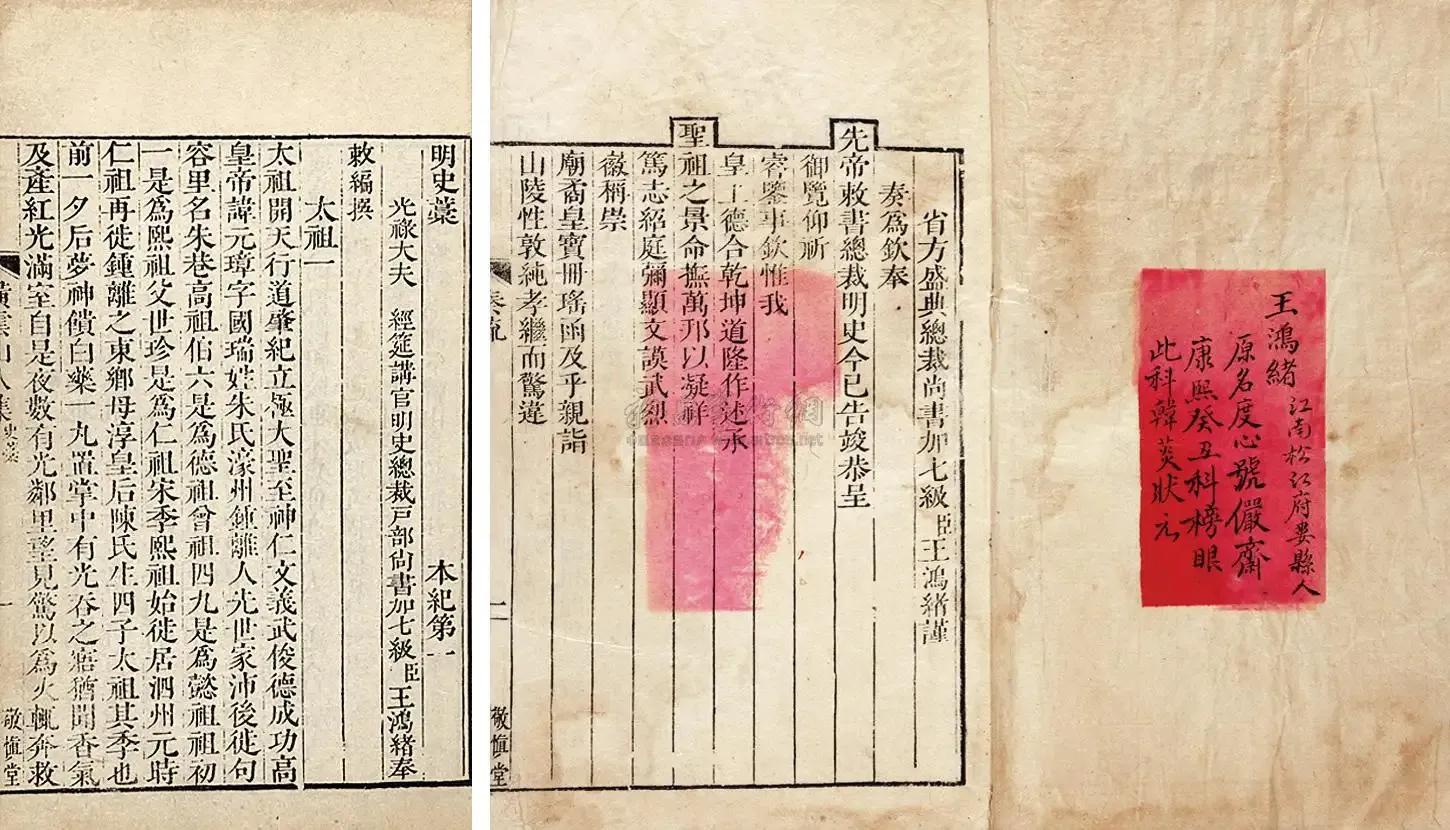 王鴻緒 江南松江府婁縣人
原名度心號儼齋
康熙癸丑科榜眼
此科韓菼狀元
省方盛典總裁尚書加七級臣王鴻緒謹
奏爲欽奉
先帝敕書總裁明史今已告竣恭呈
御覽仰祈
睿鑒事欽惟我
皇上德合乾坤道隆作述承
聖祖之景命撫萬邦以凝祥
篤志紹庭彌顯文謨武烈
徽稱崇
廟裔皇寶冊瑤函及乎親詣
山陵性敦純孝繼而驚違
奏疏 二 敬慎堂
明史藁 本紀第一
光祿大夫 經筵講官明史總裁戸部尚書加七級臣王鴻緒奉
敕編撰
太祖一
太祖開天行道肇紀立極大聖至神仁文義武俊德成功高
皇帝諱元璋字國瑞姓朱氏濠州鍾離人先世家沛後徙句
容里名朱巷高祖伯六是爲德祖曾祖四九是爲懿祖祖初
一是爲熙祖父世珍是爲仁祖宋季熙祖始徙居泗州元時
仁祖再徙鍾離之東鄉母淳皇后陳氏生四子太祖其季也
前一夕后夢神饋白藥一丸置掌中有光吞之寤猶聞香氣
及產紅光滿室自是夜數有光鄰里望見驚以爲火輒奔救
橫雲山人集 史藁 一 敬慎堂